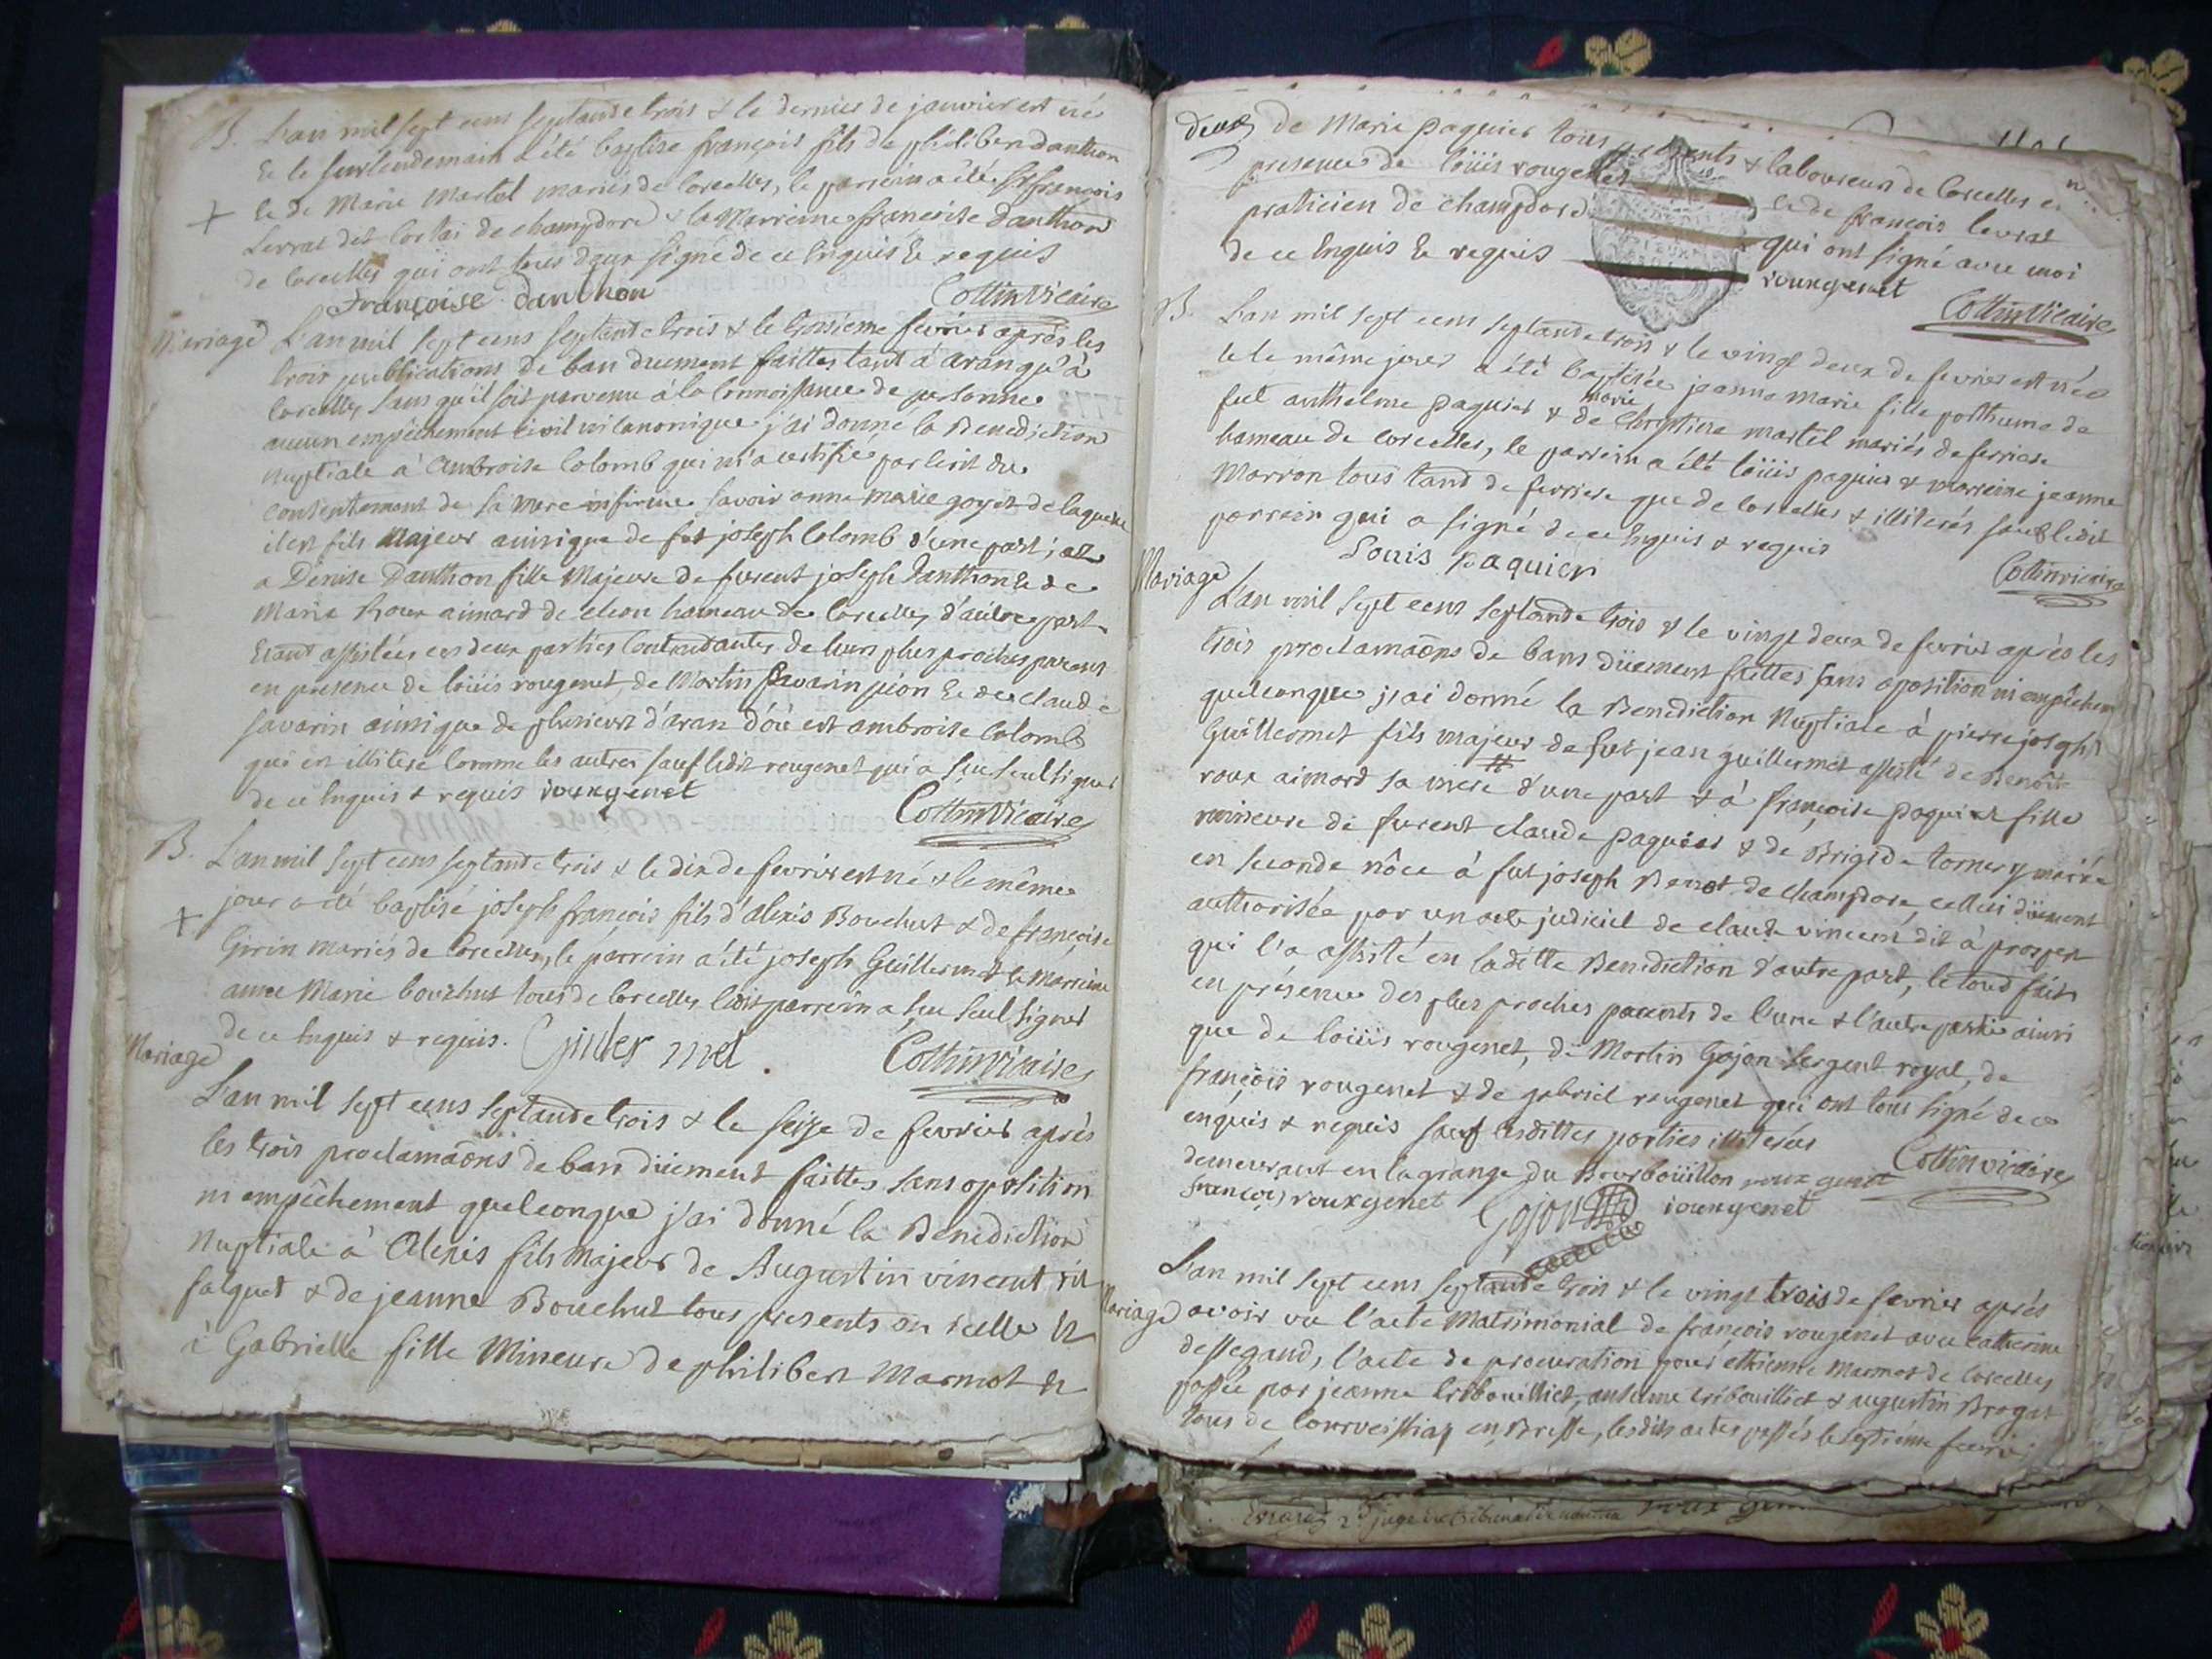 B. L'an mil sept cens septante trois & le dernier de janvier est né
& le surlendemain a été baptisé françois fils de philibert danthon
& de Marie Martel mariés de corcelles, le parrein a été sr françois
+ Levrat dit de champdore & la Marreine francoise danthon
de corcelles qui ont tous deux signé de ce enquis & requis
Françoise danthon Cottin Vicaire
Mariage L'an mil sept cens septante trois & le troisieme fevrier après les
trois publications de ban duement faittes tant à aran qu'à
corcelles sans qu'il soit parvenu à la connoissance de personne
aucun empêchement civil ni canonique j'ai donné la Benediction
nuptiale à Ambroise Colomb qui m'a certifié par écrit du
consentement de sa mere infirme savoir anne marie goyet de laquelle
il est fils Majeur ainsi que de fut joseph Colomb d'une part; et
a Denise Danthon fille Majeure de furent joseph Danthon & de
Marie Roux aimard de cleon hameau de corcelles d'autre part
Etant assistées ces deux parties contendantes de leurs plus proches parents
en presence de loüis rougenet, de Martin savarin pion & de claude
savarin ainsi que de plusieurs d'aran d'où est ambroise Colomb
qui est illiteré comme les autres sauf ledit rougenet qui a sçu seul signer
de ce enquis & requis rouxgenet Cottin Vicaire
B. L'an mil sept cens septante trois & le dix de fevrier est né & le même
jour a été baptisé joseph françois fils d'alexis Bouchut & de françoise
+ Girin mariés de corcelles, le parrein a été joseph Guillermet & la Marreine
anne Marie bouchut tous de corcelles ledit parrein a sçu seul signer
de ce enquis & requis. Guillermet. Cottin Vicaire
Mariage
L'an mil sept cens septante trois & le seize de fevrier après
les trois proclamaõns de ban düement faittes sans oposition
ni empêchement quelconque j'ai donné la Benediction
Nuptiale à Alexis fils Majeur de Augustin vincent dit
falquet & de jeanne Bouchut tous presents en icelle &
à Gabrielle fille Mineure de philibert Marmot &
deux de Marie paquier tous presents & laboureurs de corcelles en
presence de loüis rougenet & de françois levrat
praticien de champdore qui ont signé avec moi
de ce enquis & requis rouxgenet
Cottin Vicaire
B. L'an mil sept cens septante trois & le vingt deux de fevrier est née
& le même jour a été baptisée jeanne marie fille posthume de
fut anthelme paquier & de marie Christine martel mariés de ferriere
hameau de corcelles, le parrein a été loüis paquier & marreine jeanne
Marron tous tant de ferriere que de corcelles & illiterés sauf ledit
parrein qui a signé de ce enquis & requis
Louis Paquier Cottin vicaire
Mariage
L'an mil sept cens septante trois & le vingt deux de fevrier après les
trois proclamaõns de bans düement faittes sans oposition ni empêchem
quelconque j'ai donné la Benediction Nuptiale à pierre joseph
Guillermet fils majeur de fut jean guillermet assisté de Benoite
roux aimard sa mere d'une part & à françoise paquier fille
mineure de furent claude paquier & de Brigide torner mariée
en seconde nôce à fut joseph Benot de champdore celle ci düement
authorisée par un acte judiciel de claude vincent dit à prosper
qui l'a assisté en laditte Benediction d'autre part, le tout fait
en présence des plus proches parents de l'une & l'autre partie ainsi
que de loüis rougenet, de Martin Gojon sergent royal, de
françois rougenet & de gabriel rougenet qui ont tous signé de ce
enquis & requis sauf lesdittes parties illiterées
demeurant en la grange du Bourboüillon roux genet Cottin vicaire
françois rouxgenet Gojon rouxgenet
L'an mil sept cens septante trois & le vingt trois de fevrier après
Mariage avoir vu l'acte Matrimonial de francois rougenet avec catherine
dessegaud, l'acte de procuration pour ethienne Marmot de corcelles
passée par jeanne tribouilliet, anselme tribouilliet & augustin Brogat
tous de en Bresse, lesdits actes passés le septieme fevrier